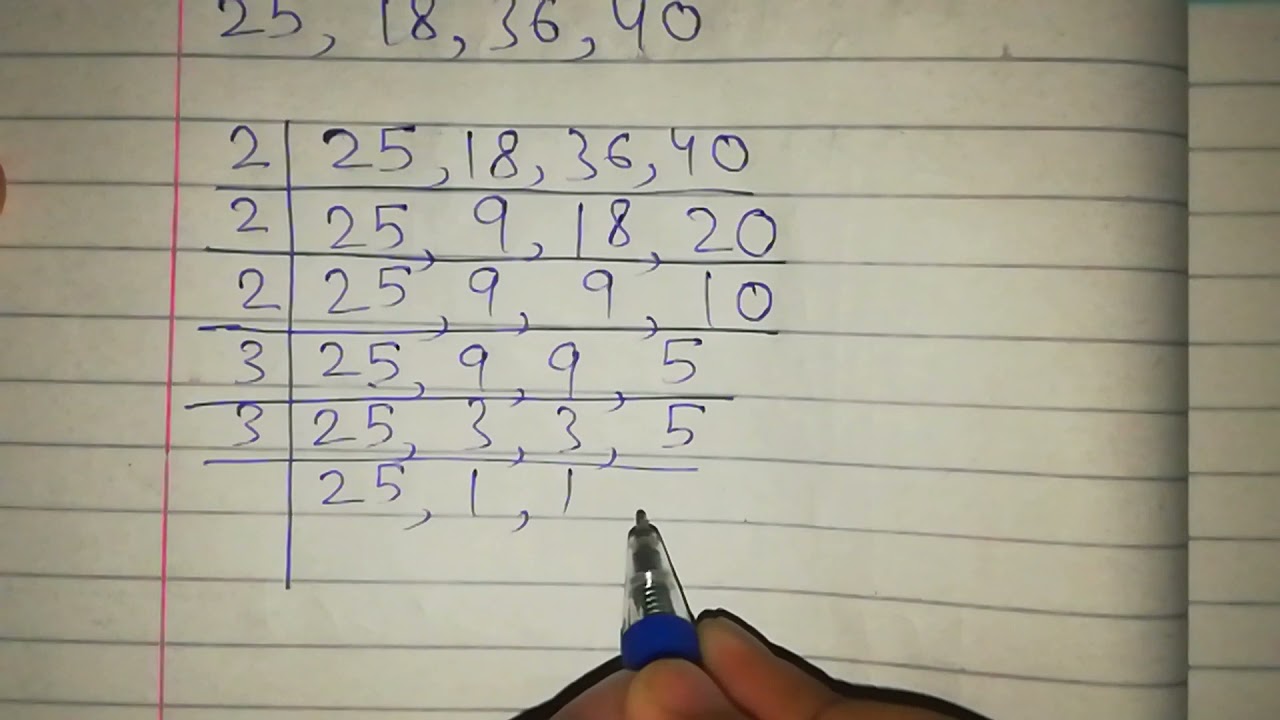 25, 18, 36, 40
2 | 25, 18, 36, 40
2 | 25, 9, 18, 20
2 | 25, 9, 9, 10
3 | 25, 9, 9, 5
3 | 25, 3, 3, 5
| 25, 1, 1